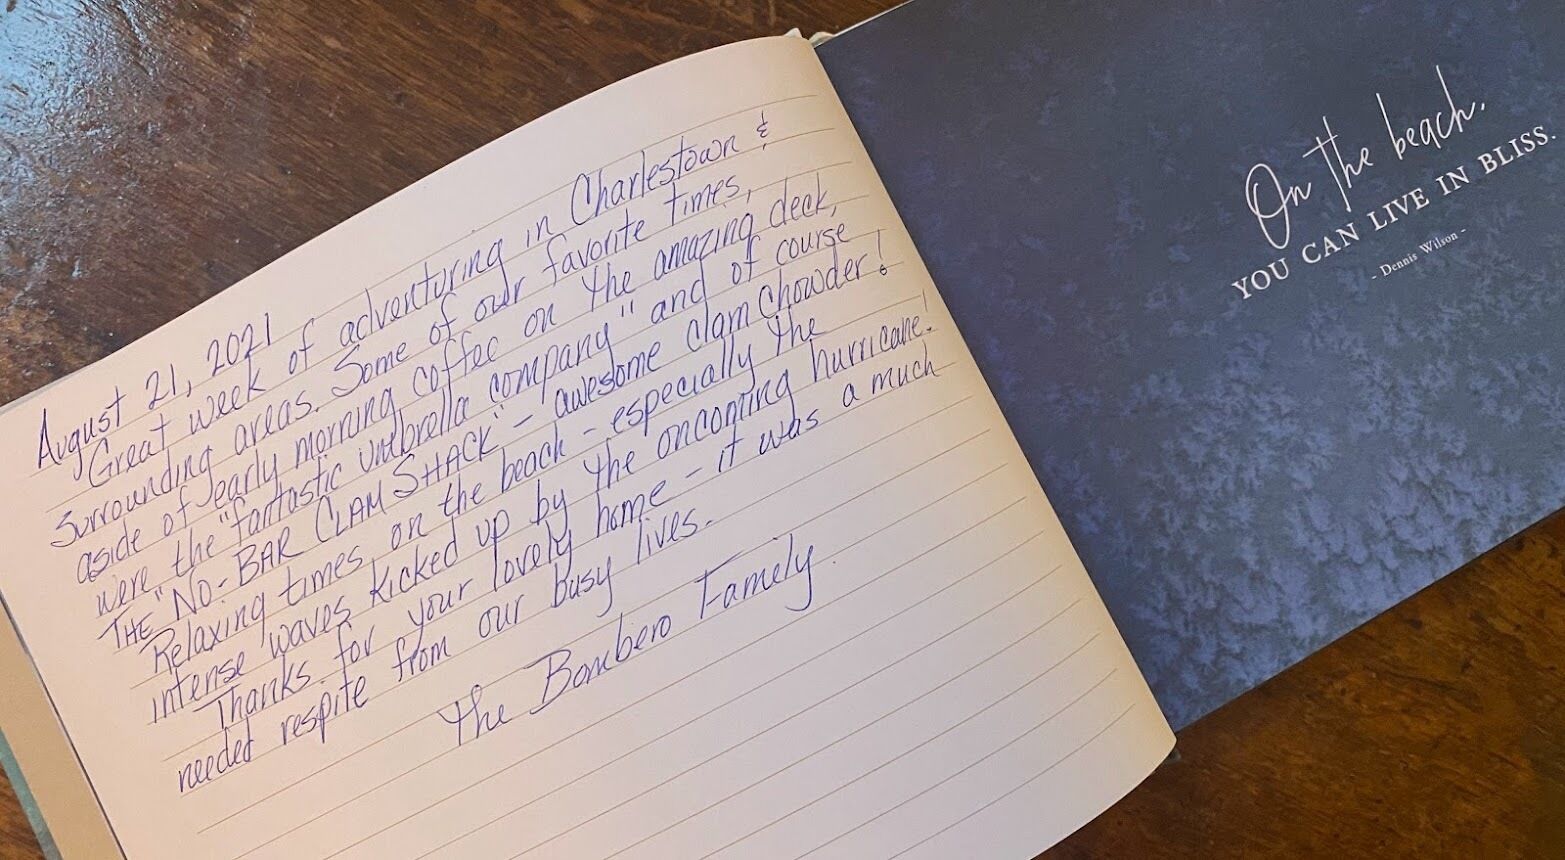 August 21, 2021
Great week of adventuring in Charlestown &
surrounding areas. Some of our favorite times,
aside of early morning coffee on the amazing deck,
were the "fantastic umbrella company" and of course
THE "NO-BAR CLAM SHACK" - awesome clam chowder!
Relaxing times on the beach - especially the
intense waves kicked up by the oncoming hurricane!
Thanks for your lovely home - it was a much
needed respite from our busy lives.
The Bombero Family
On the beach,
YOU CAN LIVE IN BLISS.
- Dennis Wilson -